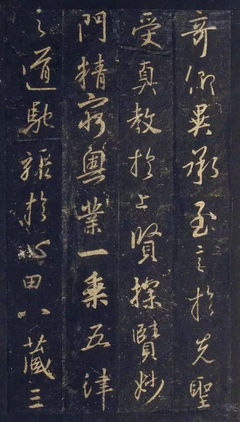 奇仰異承至言於先聖
受真教於上賢探賾妙
門精窮奧業一乘五律
之道馳驟於心田八藏三